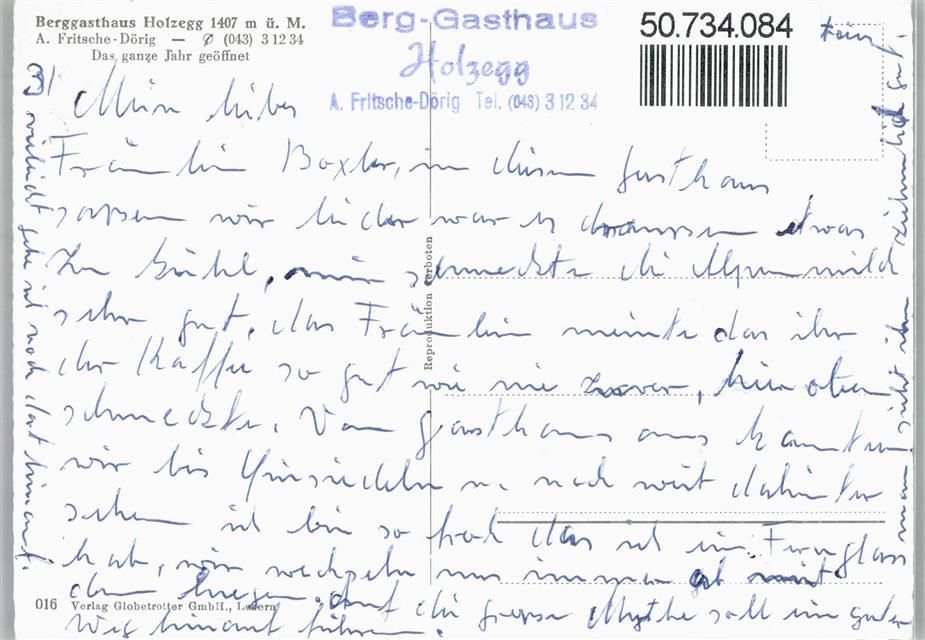 Berggasthaus Holzegg 1407 m ü. M.
A. Fritsche-Dörig — ✆ (043) 3 12 34
Das ganze Jahr geöffnet
Berg-Gasthaus
Holzegg
A. Fritsche-Dörig Tel. (043) 3 12 34
50.734.084
3)
Meine liebes
Fräulein Boxler, in diesem Gasthaus
sassen wir leider war es draussen etwas
zu kühl, mir schmeckte die Alpenmilch
sehr gut, das Fräulein meinte das ihr
der Kaffee so gut wie nie zuvor, hier oben
schmeckte. Vom Gasthaus aus konnten
wir bis Einsiedeln u. noch weit dahinter
sehen ich bin so froh das ich ein Fernglass
hab, wir wechseln uns immer ab mit
dem liegen. Auf die grosse Mythe soll ein guter
Weg hinauf führen.
vielleicht gehe ich noch dort hinauf.
man sieht ihn
ziemlich gut
Reproduktion verboten
016 Verlag Globetrotter GmbH., Luzern